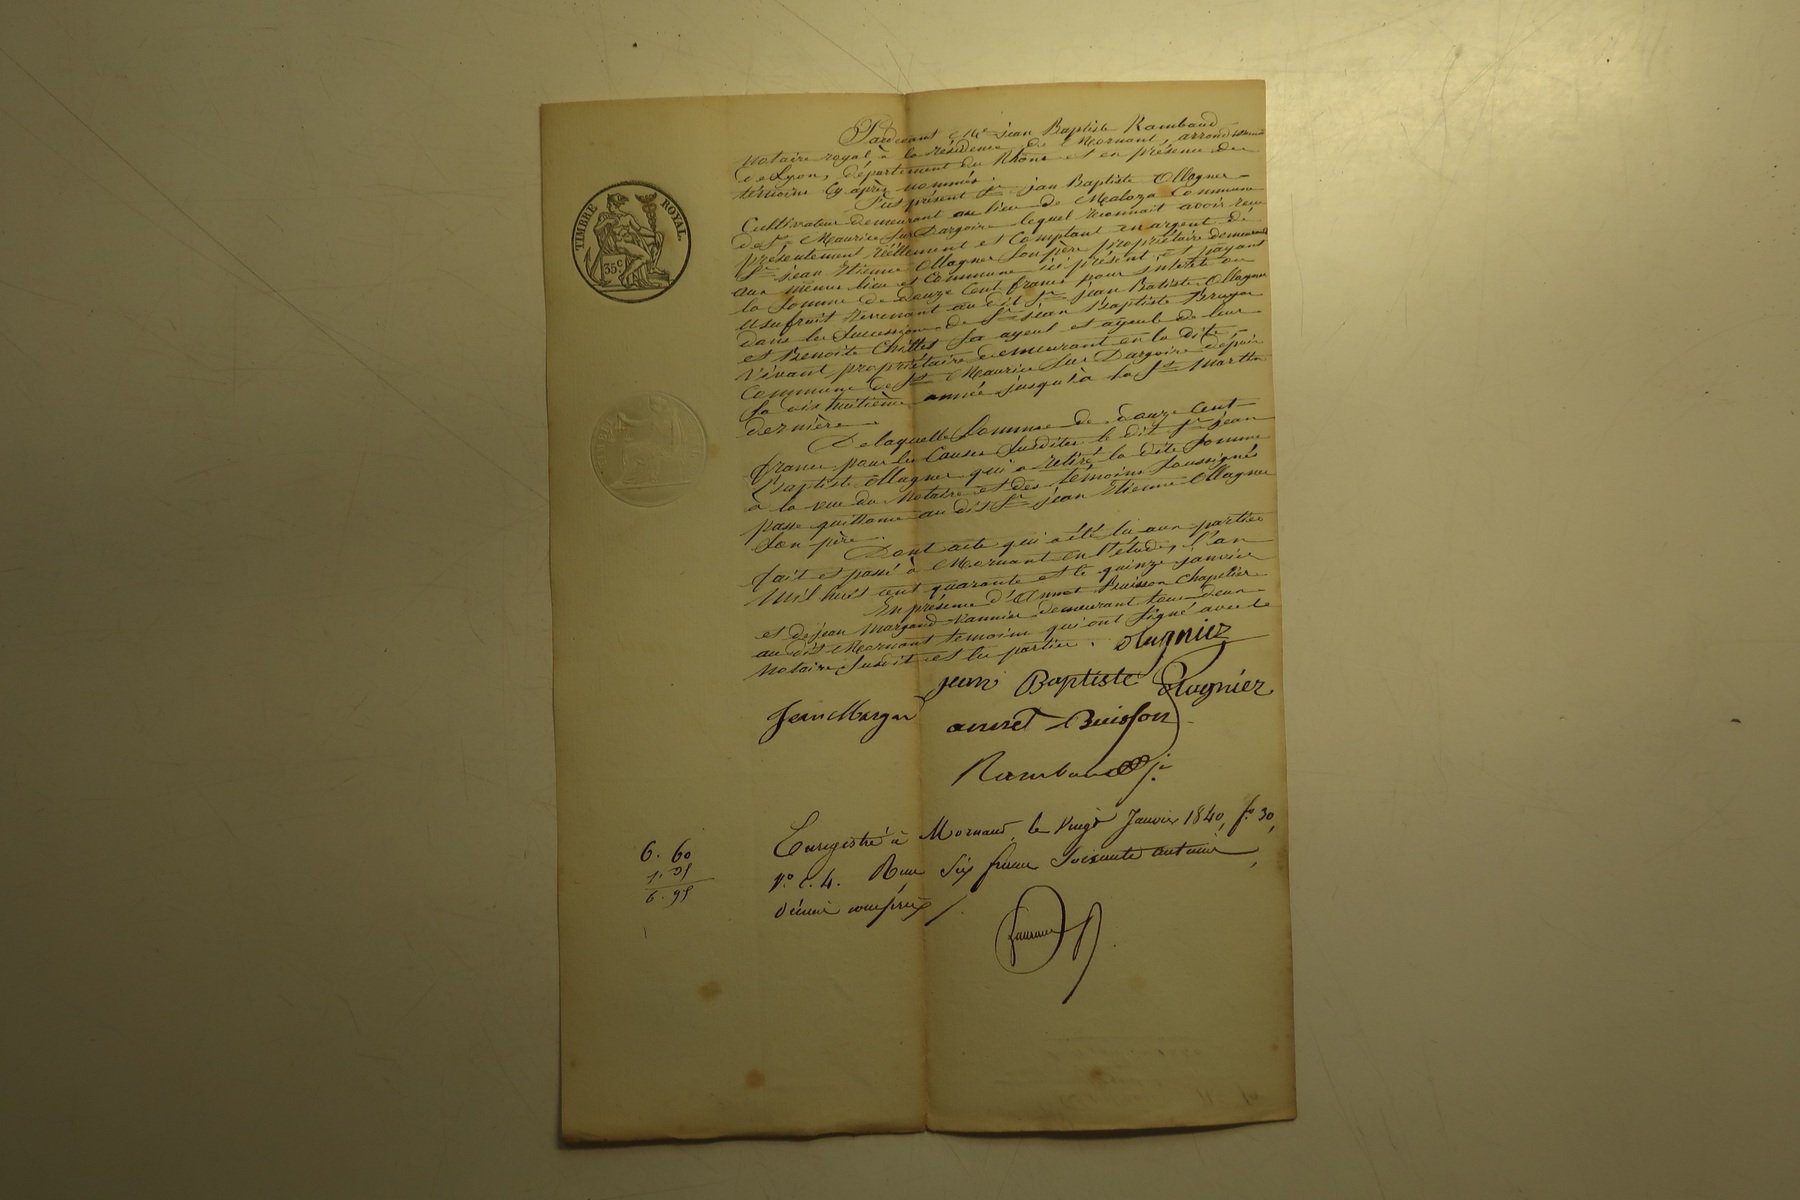 TIMBRE ROYAL.
35 c.
Pardevant Me jean Baptiste Rambaud
Notaire royal à la résidence de Mornant, arrondissement
de Lyon, département du Rhône et en présence des
témoins cy après nommés.
Fut présent Sr jean Baptiste Ollagner
Cultivateur demeurant au lieu de Commune
de St Maurice Sur Dargoire lequel reconnait avoir reçu
présentement réellement et Comptant en argent de
Sr jean Etienne Ollagner Son père propriétaire demeurant
aux mêmes lieu et Commune ici présent et payant
la Somme de douze Cent francs pour intérêts ou
usufruit revenant au dit Sr jean Batiste Ollagner
dans les Successions de Sr jean Baptiste Bruyas
et Benoite Chillet Ses ayeul et ayeule de leur
vivant propriétaire demeurant en la dite
Commune de St Maurice Sur Dargoire depuis
Sa dix huitième année jusqu'à la St Martin
dernière
De laquelle Somme de douze Cent
francs pour les Causes Susdites le dit Sr jean
Baptiste Ollagner qui a retiré la dite Somme
à la vue du Notaire et des témoins Soussignés
passe quittance au dit Sr jean Etienne Ollagner
Son père.
Dont acte qui a été lu aux parties
fait et passé à Mornant en l'étude, l'an
Mil huit cent quarante et le quinze janvier
En présence d'Annet Buisson Chapelier
et de jean Margand Vannier demeurant tous deux
au dit Mornant témoins qui ont Signé avec le
Notaire Susdit et les parties. Olagniez
jean Baptiste Olagniez
Jean Margan
annet Buisson
Rambaud
Enregistré à Mornant, le vingt Janvier 1840, fo 30,
vo c. 4. Reçu Six francs Soixante centimes,
décime compris
6. 60
6. 95